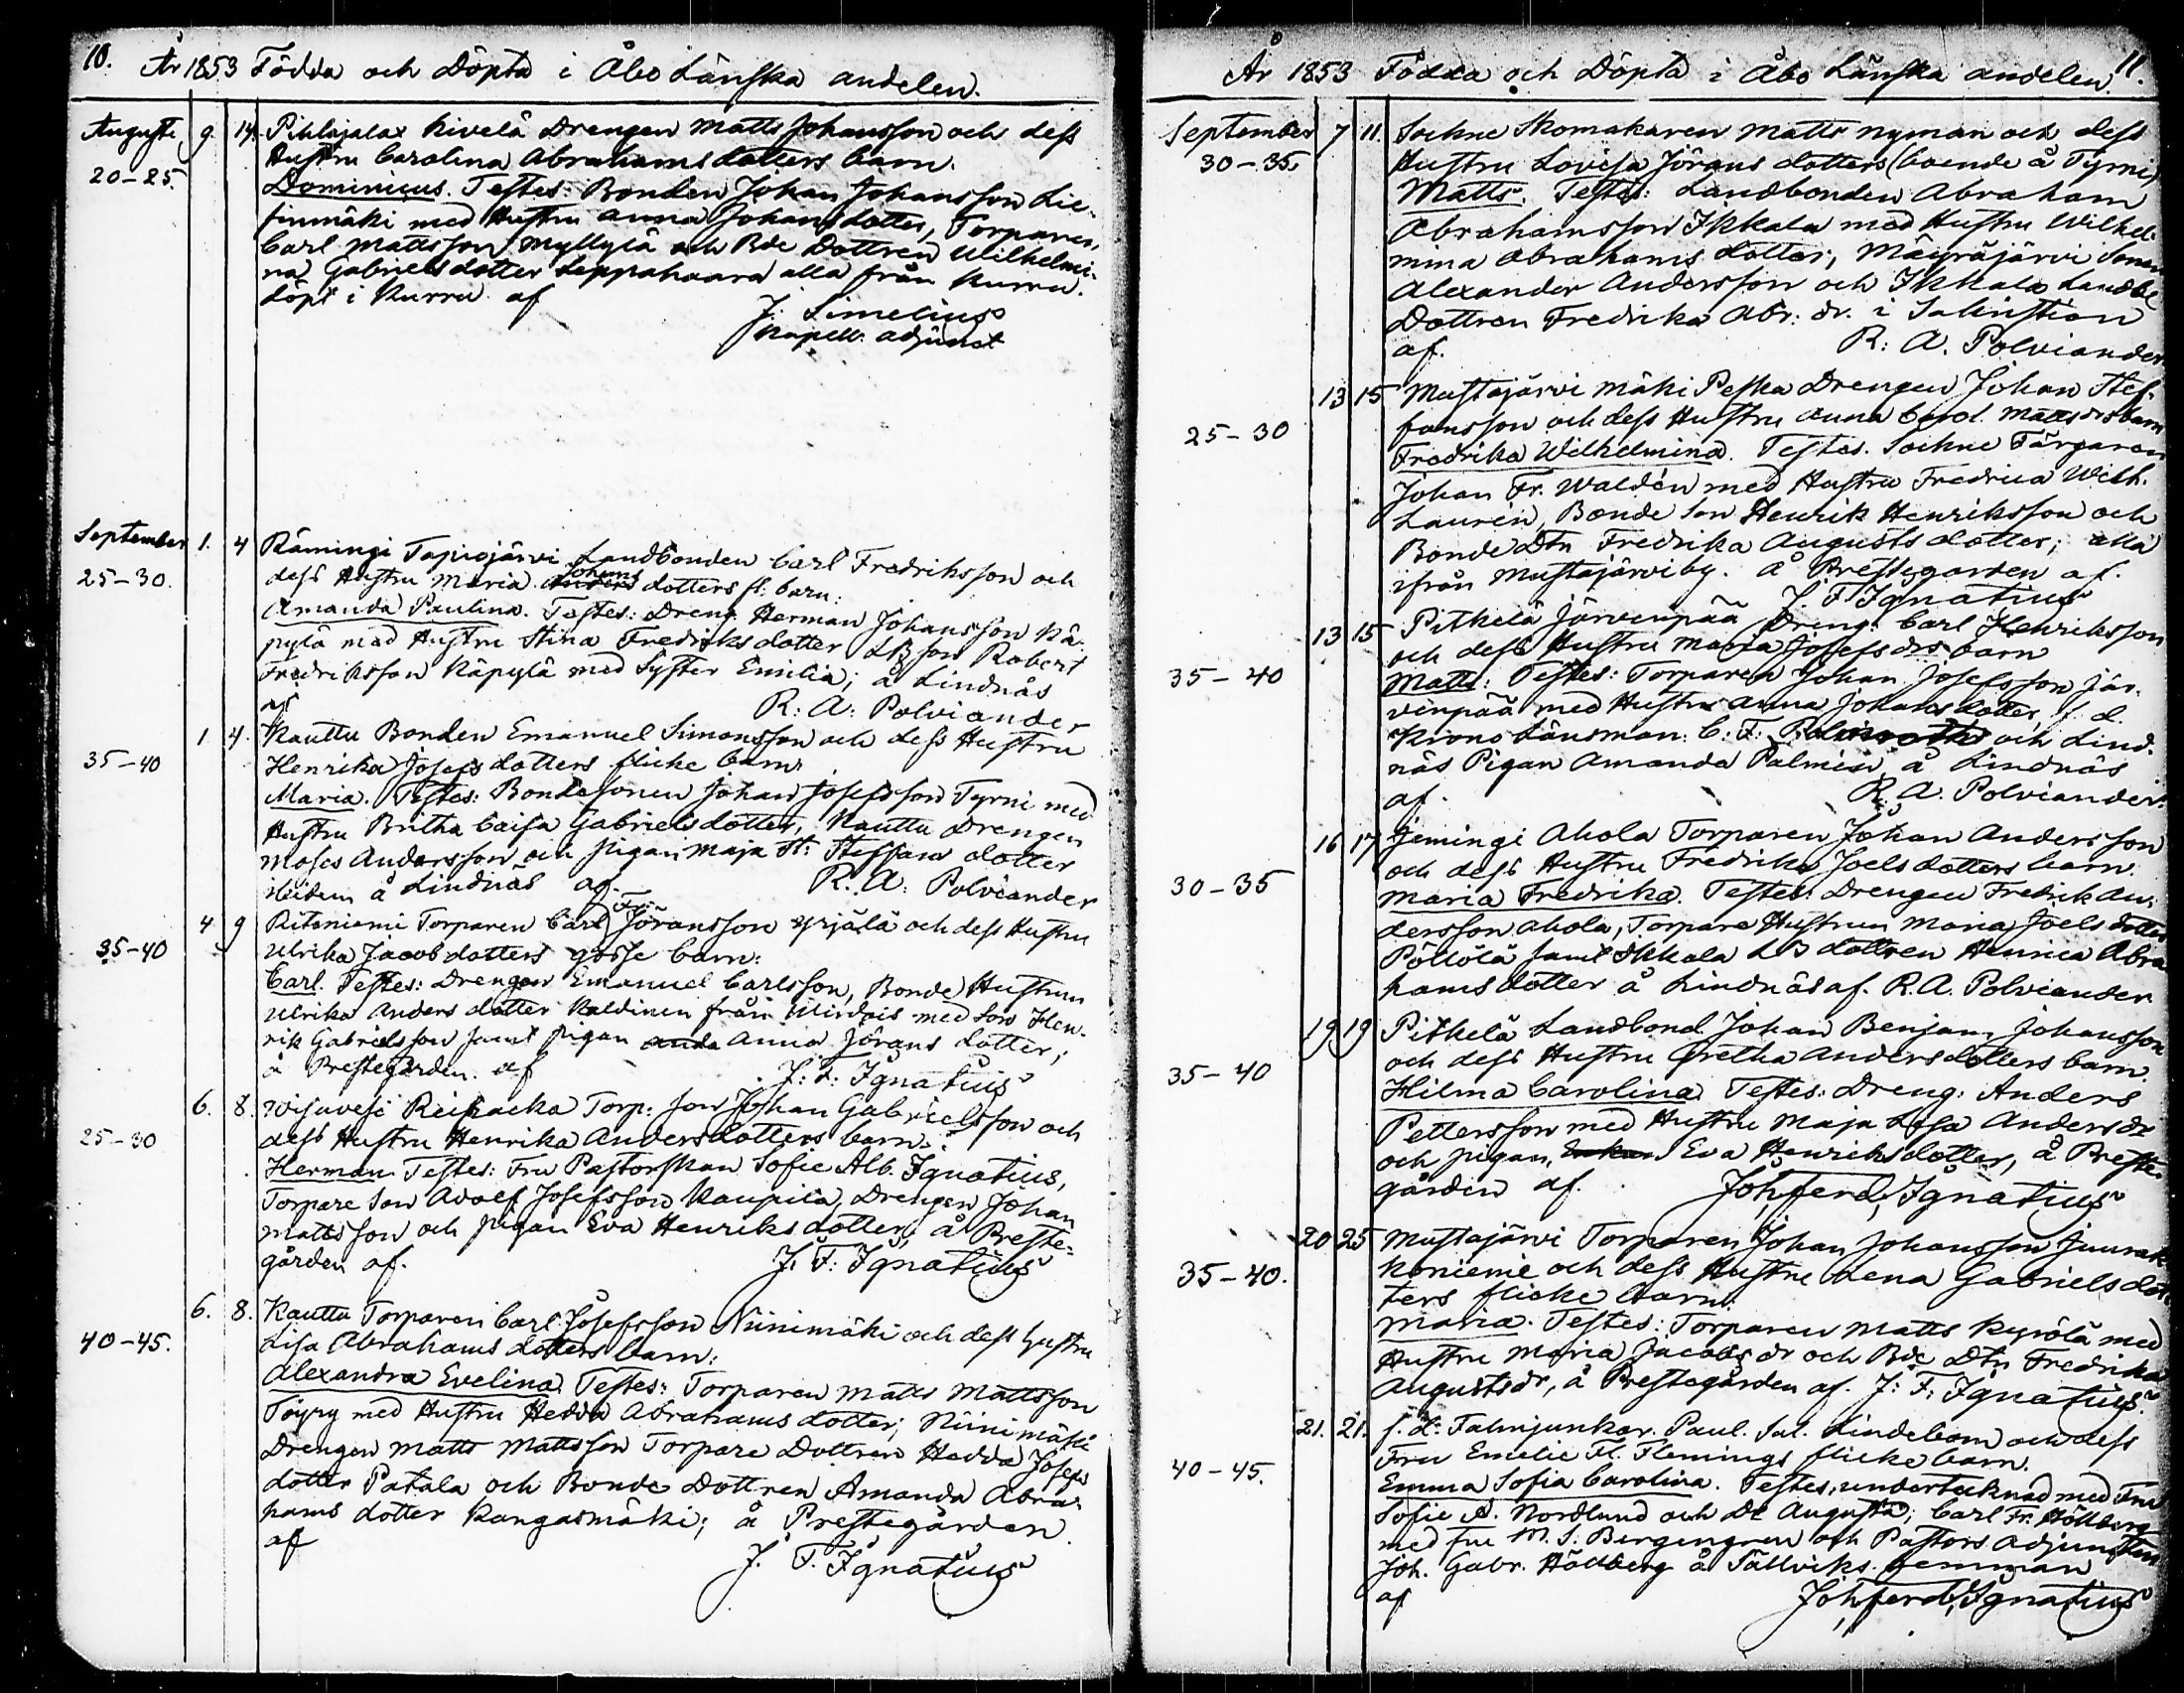 10. År 1853 Födda och Döpta i Åbo Länska andelen.
Augusti 9. 14. Pihlajalax Kivelä Drengen Matts Johansson och dess
20-25. Hustru Carolina Abrahams dotters barn.
Dominicus. Testes: Bonden Johan Johansson Lie-
finmäki med Hustru Anna Johans dotter, Torparen,
Carl Mattsson Myllylä och Bde Dottren Wilhelmi-
na Gabriels dotter Leppahaara alla från Kurru.
Döpt i Kurru af
J. Simelius
Kapell. adjunct
September 1. 4 Rämingi Tapiojärvi Landbonden Carl Fredriksson och
25-30. dess Hustru Maria Johans dotters fl. barn:
Amanda Paulina. Testes: Dreng. Herman Johansson Kä-
pylä med Hustru Stina Fredriks dotter LBson Robert
Fredriksson Käpylä med Syster Emilia; å Lindnäs
af R: A: Polviander
1 4. Kauttu Bonden Emanuel Simonsson och dess Hustru
35-40 Henrika Josefs dotters flicke barn
Maria. Testes: Bondesonen Johan Josefsson Tyrni med
Hustru Britha Caisa Gabriels dotter, Kauttu Drengen
Moses Andersson och pigan Maja St: Steffans dotter
å Lindnäs af. R. A: Polviander
4 9 Ritoniemi Torparen Carl Fr. Jöransson Yrjälä och dess Hustru
35-40 Ulrika Jacobs dotters gosse barn:
Carl. Testes: Drengen Emanuel Carlsson, Bonde Hustrun
Ulrika Anders dotter Kaldinen från Wirdois med Son Hen-
rik Gabrielsson samt pigan Anna Jörans dotter;
å Prestegården. af J: F: Ignatius
6. 8. Wisuvesi Reipacka Torp: son Johan Gabrielsson och
25-30 dess Hustru Henrika Anders dotters barn:
Herman Testes: Fru Pastorskan Sofie Alb. Ignatius,
Torpare Son Adolf Josefsson Kaupila, Drengen Johan
Mattsson och pigan Eva Henriks dotter, å Preste-
gården af. J. F: Ignatius
6. 8. Kauttu Torparen Carl Josefsson Niinimäki och dess Hustru
40-45. Lisa Abrahams dotters barn:
Alexandra Evelina. Testes: Torparen Matts Mattsson
Töyry med Hustru Hedda Abrahams dotter; Niinimäki
Drengen Matts Mattsson Torpare Dottren Hedda Josefs
dotter Patala och Bonde Dottren Amanda Abra-
hams dotter Kangasmäki; å Prestegården
af
J. F. Ignatius
År 1853 Födda och Döpta i Åbo Länska andelen 11.
September 7 11. Sockne Skomakaren Matts Nyman och dess
30-35. Hustru Lovisa Jörans dotters (boende å Tyrni)
Matts. Testes: Landbonden Abraham
Abrahamsson Ikkala med Hustru Wilhel-
mina Abrahams dotter; Mäyräjärvi Sonen
Alexander Andersson och Ikkala Landbd
Dottren Fredrika Abr: dr. i Sakristian
af. R: A. Polviander
13 15 Mustajärvi Mäki Peska Drengen Johan Stef-
25-30 fansson och dess Hustru Anna Carol. Matts drs barn
Fredrika Wilhelmina. Testes. Sockne Färgaren
Johan Fr. Waldén med Hustru Fredrica Wilh.
Laurén, Bonde Son Henrik Henriksson och
Bonde Dtn Fredrika Augusts dotter; alla
ifrån Mustajärvi by. å Prestegården af.
J. F. Ignatius
13 15 Pitkelä Järvenpää Dreng: Carl Henriksson
35-40 och dess Hustru Maria Josefs drs barn
Matts: Testes: Torparen Johan Josefsson Jär-
venpää med Hustru Anna Johans dotter, f. d.
Krono Länsman C: F: och Lind-
näs Pigan Amanda Palmén å Lindnäs
af. R. A. Polviander.
16 17 Jemingi Ahola Torparen Johan Andersson
30-35 och dess Hustru Fredrika Joels dotters barn.
Maria Fredrika. Testes: Drengen Fredrik An-
dersson Ahola, Torpare Hustrun Maria Joels dotter
Pöllölä samt Ikkala LB dottren Henrica Abra
hams dotter å Lindnäs af. R. A. Polviander
19 19 Pitkelä Landbond. Johan Benjam. Johansson
35-40 och dess Hustru Gretha Anders dotters barn.
Hilma Carolina. Testes: Dreng: Anders
Pettersson med Hustru Maja Lisa Anders dr
och pigan Eva Henriks dotter, å Preste-
gården af. Joh. ferd. Ignatius
20 25 Mustajärvi Torparen Johan Johansson Juurak-
35-40. koniemi och dess Hustru Lena Gabriels dot-
ters flicke barn:
Maria. Testes: Torparen Matts Kyrölä med
Hustru Maria Jacobs dr och Bde Dtn Fredrika
Augusts dr, å Prestegården af. J: F: Ignatius
21. 21. f. d: Fahnjunkar. Paul. Sal. Lindebom och dess
40-45. Fru Emelie Fl. Flemings flicke barn.
Emma Sofia Carolina. Testes, undertecknad med Fru
Sofie A. Nordlund och Dr Augusta; Carl Fr. Hållberg
med Fru M. S. Bergengren och Pastors Adjuncten
Joh. Gabr. Hållberg å Sällviks hemman
af Joh. ferd. Ignatius